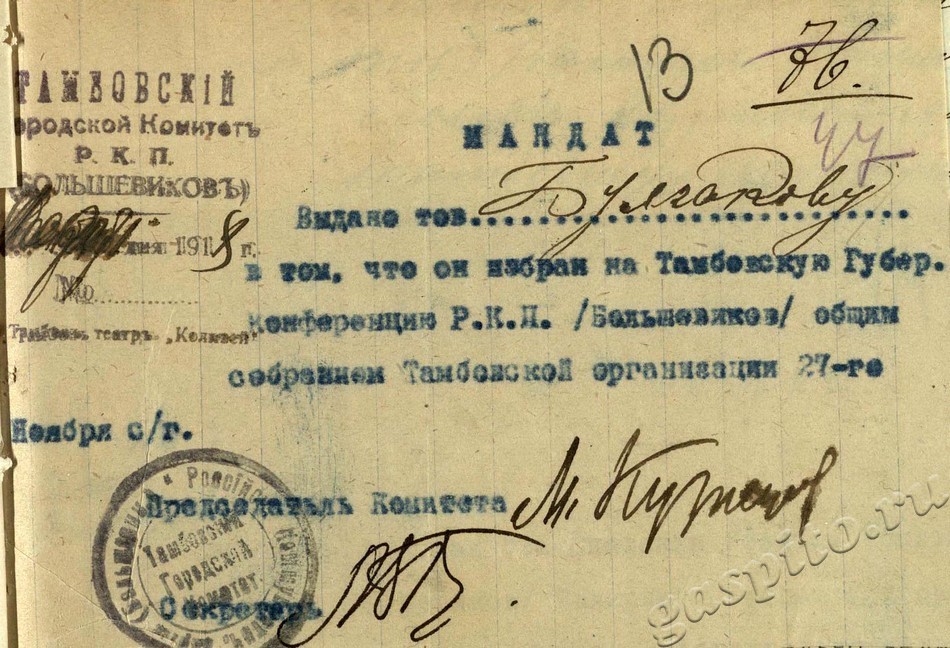 13
76.
47
ТАМБОВСКІЙ
ородской Комитетъ
Р. К. П.
(БОЛЬШЕВИКОВЪ)
1918 г.
№
Тамбовъ, театръ „Колизей“
МАНДАТ
Выдано тов. Булгакову
в том, что он избран на Тамбовскую Губер.
Конференцию Р.К.П. /Большевиков/ общим
собранием Тамбовской организации 27-го
Ноября с/г.
Председатель Комитета
Секретарь
Тамбовскій
Городской
Комитет.
gaspito.ru